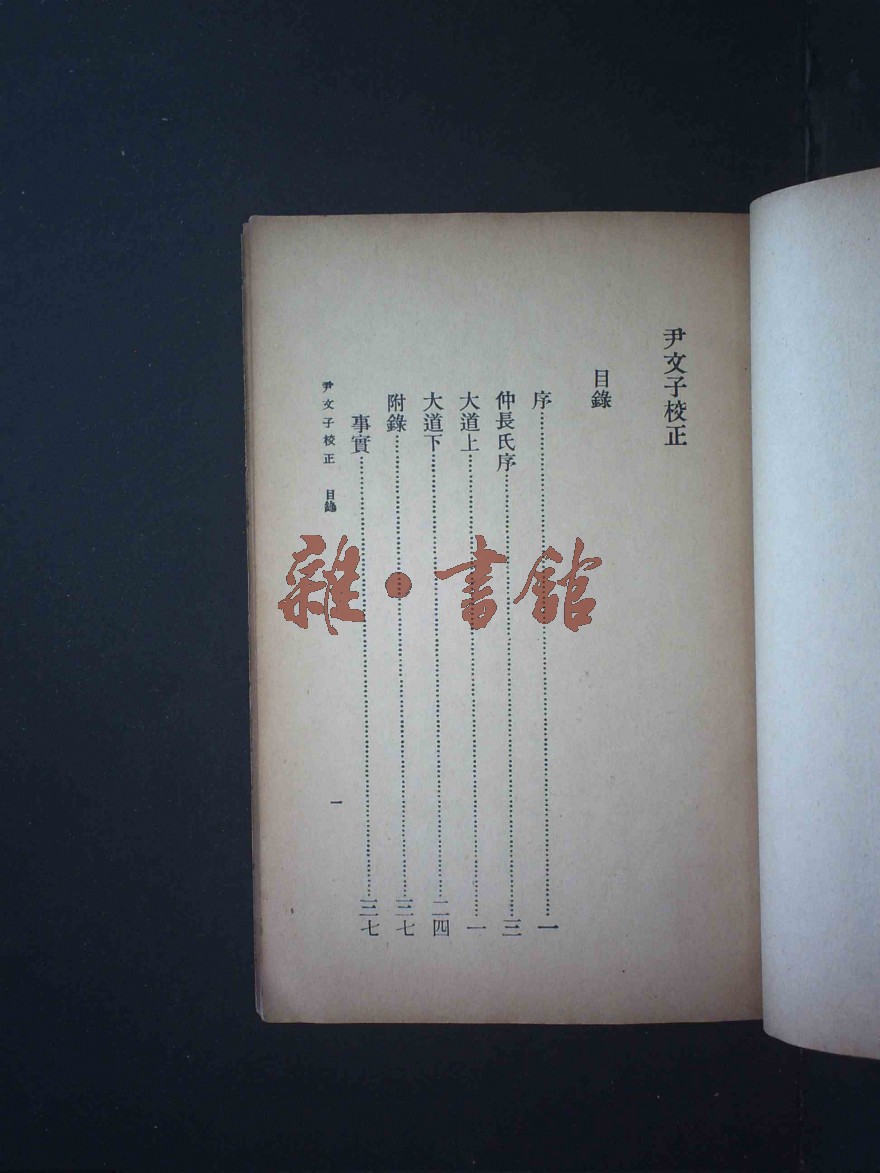 尹文子校正
目錄
序……一
仲長氏序……三
大道上……一
大道下……二四
附錄……三七
事實……三七
尹文子校正 目錄
一
雜·書館